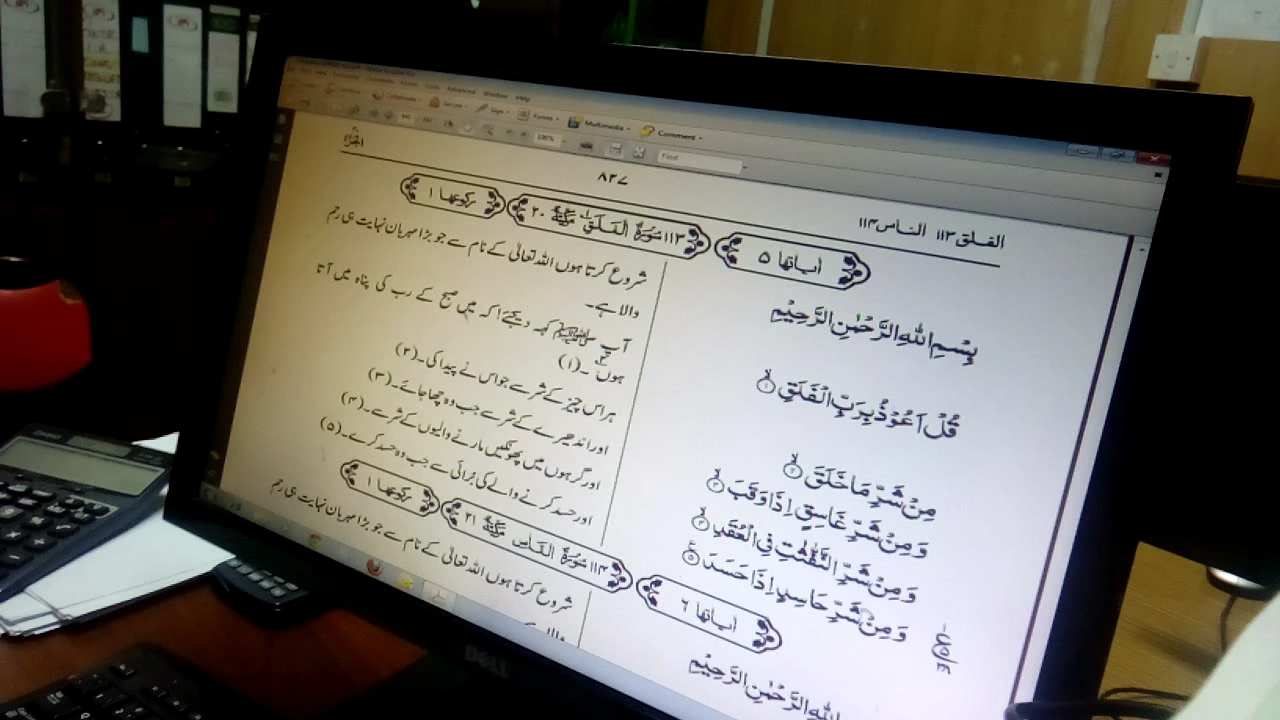 Advanced Window Help
Forms
Multimedia
Comment
100%
Find
الفلق ١١٣ الناس ١١٤
٨٢٧
اٰیاتها ٥
١١٣ سُوْرَةُ الْفَلَقِ مَكِّيَّةٌ ٢٠
ركوعها ١
بِسْمِ اللّٰهِ الرَّحْمٰنِ الرَّحِيْمِ
شروع کرتا ہوں اللہ تعالیٰ کے نام سے جو بڑا مہربان نہایت ہی رحم
والا ہے۔
قُلْ اَعُوْذُ بِرَبِّ الْفَلَقِ ۙ‏﴿۱﴾
آپ ﷺ کہہ دیجئے! کہ میں صبح کے رب کی پناہ میں آتا
ہوں۔(۱)
مِنْ شَرِّ مَا خَلَقَ ۙ‏﴿۲﴾
ہر اس چیز کے شر سے جو اس نے پیدا کی۔(۲)
وَمِنْ شَرِّ غَاسِقٍ اِذَا وَقَبَ ۙ‏﴿۳﴾
اور اندھیرے کے شر سے جب وہ چھا جائے۔(۳)
وَمِنْ شَرِّ النَّفّٰثٰتِ فِي الْعُقَدِ ۙ‏﴿۴﴾
اور گرہوں میں پھونکیں مارنے والیوں کے شر سے۔(۴)
وَمِنْ شَرِّ حَاسِدٍ اِذَا حَسَدَ ‏﴿۵﴾
اور حسد کرنے والے کی برائی سے جب وہ حسد کرے۔(۵)
اٰیاتها ٦
١١٤ سُوْرَةُ النَّاسِ مَكِّيَّةٌ ٢١
ركوعها ١
بِسْمِ اللّٰهِ الرَّحْمٰنِ الرَّحِيْمِ
شروع کرتا ہوں اللہ تعالیٰ کے نام سے جو بڑا مہربان نہایت ہی رحم
DELL